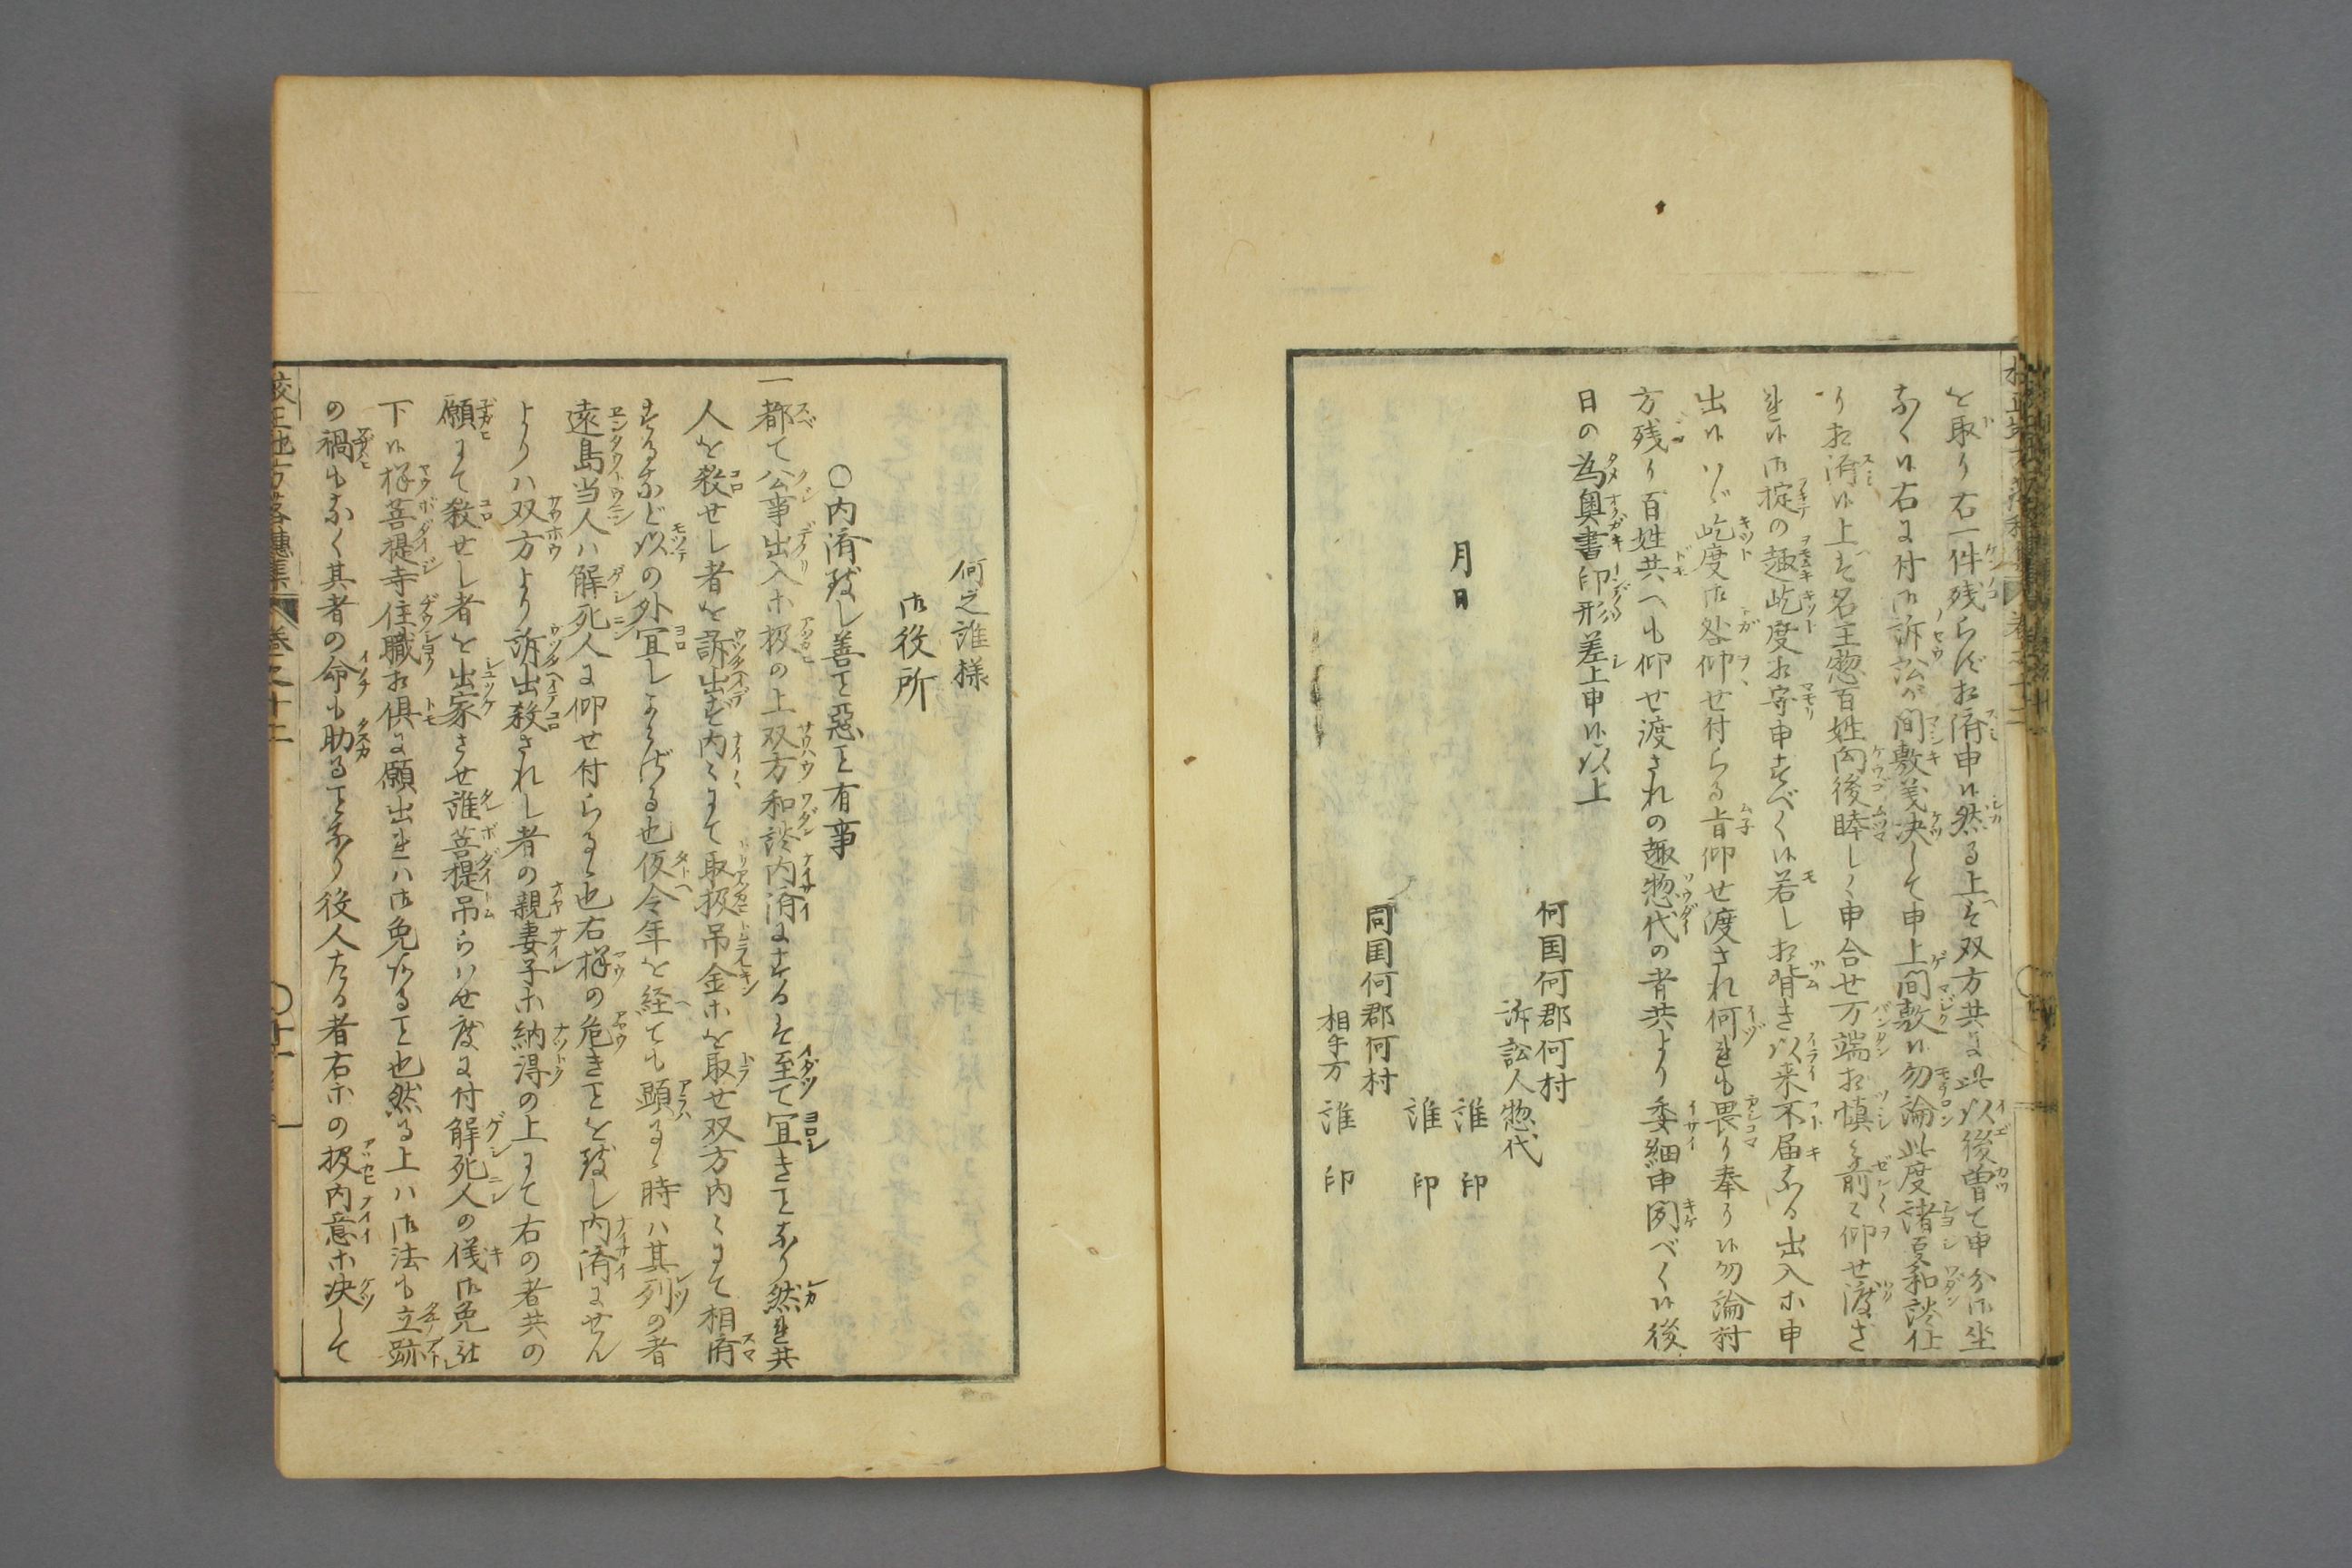 を取り右一件残らず相済申候然る上ハ双方共に以後曽て申分御坐
なく候右に付御訴訟ケ間敷義決して申上間敷候勿論此度諸事和談仕
り相済候上ハ名主惣百姓向後睦しく申合せ万端相慎ミ前々仰せ渡さ
れ候御掟の趣屹度相守申すべく候若し相背き以来不届なる出入ホ申
出候ハヾ屹度御咎仰せ付らる旨仰せ渡され何れも畏り奉り候勿論村
方残り百姓共へも仰せ渡されの趣惣代の者共より委細申聞べく候後
日の為奥書印形差上申候以上
何国何郡何村
訴訟人惣代
月日
誰 印
誰 印
同国何郡何村
相手方 誰 印
何之誰様
御役所
○内済致し善と悪と有事
一都て公事出入ホ扱の上双方和談内済にするハ至て宜きことなり然れ共
人を殺せし者を訴出ず内々にて取扱吊金ホを取せ双方内々にて相済
するなど以の外宜しからざる也仮令年を経ても顕るゝ時ハ其列の者
遠島当人ハ解死人に仰せ付らるゝ也右様の危きことを致し内済にせん
よりハ双方より訴出殺されし者の親妻子ホ納得の上にて右の者共の
願にて殺せし者を出家させ誰菩提吊らハせ度に付解死人の儀御免被
下候様菩提寺住職相倶に願出れハ御免なること也然る上ハ御法も立跡
の禍もなく其者の命も助ることなり役人たる者右ホの扱内意ホ決して
校正地方落穂集 巻之十二